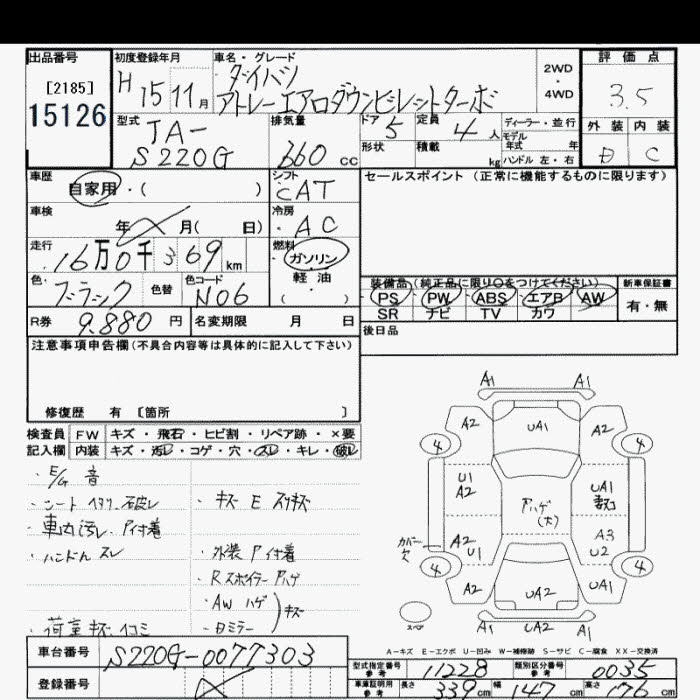 出品番号
[2185]
15126
初度登録年月
H 15 11月
車名・グレード
ダイハツ
アトレーエアロダウンビレットターボ
2WD
・
4WD
評価点
3.5
外装 内装
D C
型式
JA-
S220G
排気量
660 cc
ドア
5
定員
4 人
形状
積載
kg
ディーラー・並行
モデル
年式 年
ハンドル 左・右
車歴
自家用・( )
シフト
CAT
セールスポイント (正常に機能するものに限ります)
車検
年 月( 日)
冷房
AC
走行
16万0千369km
燃料
ガソリン
軽油
( )
色
ブラック
色替
色コード
N06
装備品 (純正品に限り○をつけてください)
PS・PW・ABS・エアB・AW
SR・ナビ・TV・カワ・
新車保証書
有・無
R券 9.880 円
名変期限 月 日
後日品
注意事項申告欄(不具合内容等は具体的に記入して下さい)
修復歴 有 〔箇所 〕
検査員 FW キズ・飛石・ヒビ割・リペア跡・×要
記入欄 内装 キズ・汚レ・コゲ・穴・スレ・キレ・破レ
・E/G 音
・シート ヘタリ、破レ
・車内汚レ、P付着
・ハンドル スレ
・荷室キズ、凹ミ
・キズ E スリキズ
・外装 P付着
・Rスポイラー Pハゲ
・AW ハゲ
・Dミラー
キズ
A1 A1
A2 UA1 A2
4 4
U1
A2
UA1
Pハゲ
(大)
A3
U2
カバー
欠
A2
U1
4 4
A2 UA2 UA1
スペア
A1 UA2 A1
A-キズ E-エクボ U-凹み W-補修跡 S-サビ C-腐食 XX-交換済
車台番号 S220G-0077303
登録番号
型式指定番号
参考
11228
類別区分番号
参考
0035
車庫証明用
参考
長さ 339cm 幅 147cm 高さ 176cm